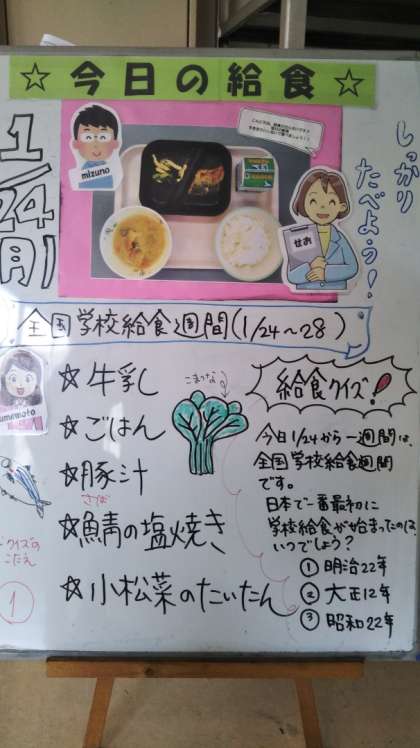 ☆今日の給食☆
1/24(月)
しっかり
たべよう!
mizuno
せお
全国学校給食週間(1/24~28)
umemoto
☆牛乳
☆ごはん
☆豚汁
さば
☆鯖の塩焼き
☆小松菜のたいたん
こまつな
給食クイズ!
今日1/24から一週間は、
全国学校給食週間
です。
日本で一番最初に
学校給食が始まったのは、
いつでしょう?
① 明治22年
② 大正12年
③ 昭和22年
クイズの
こたえ
①